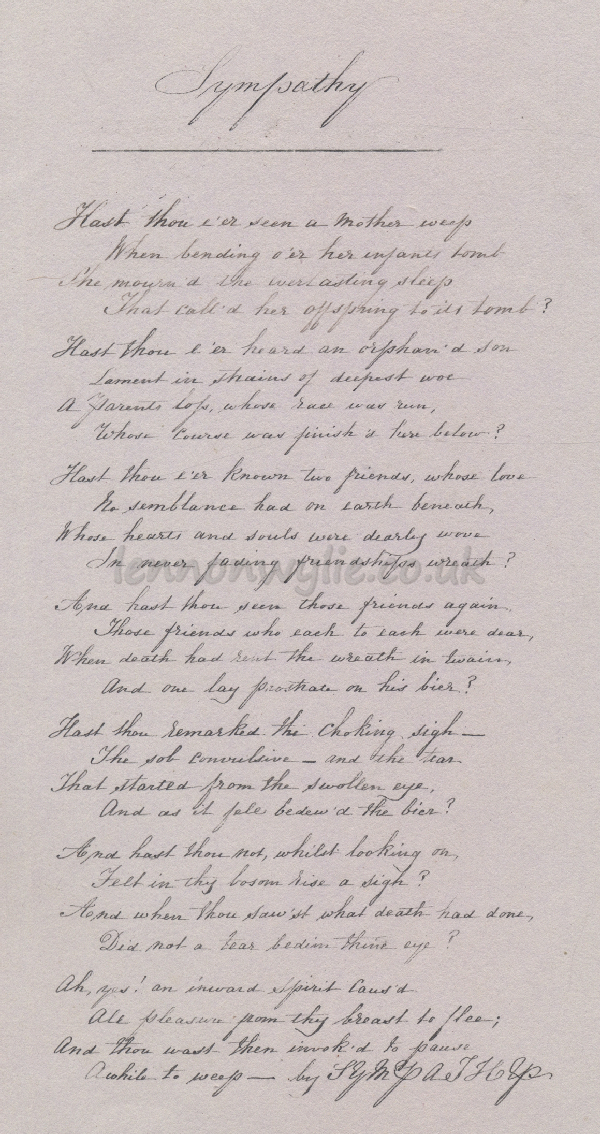 Sympathy
Hast thou e'er seen a Mother weep
When bending o'er her infants tomb
She mourn'd the everlasting sleep
That call'd her offspring to its tomb?
Hast thou e'er heard an orphan'd son
Lament in strains of deepest woe
A Parents loss, whose race was run,
Whose course was finish'd here below?
Hast thou e'er known two friends, whose love
No semblance had on earth beneath,
Whose hearts and souls were dearly wove
In never fading friendships wreath?
lennonwylie.co.uk
And hast thou seen those friends again
Those friends who each to each were dear,
When death had rent the wreath in twain,
And one lay prostrate on his bier?
Hast thou remarked the choking sigh —
The sob convulsive — and the tear
That started from the swollen eye,
And as it fell bedew'd the bier?
And hast thou not, whilst looking on,
Felt in thy bosom rise a sigh?
And when thou saw'st what death had done,
Did not a tear bedim thine eye?
Ah, yes! an inward spirit caus'd
All pleasure from thy breast to flee;
And thou wast then invok'd to pause
Awhile to weep — by SYMPATHY